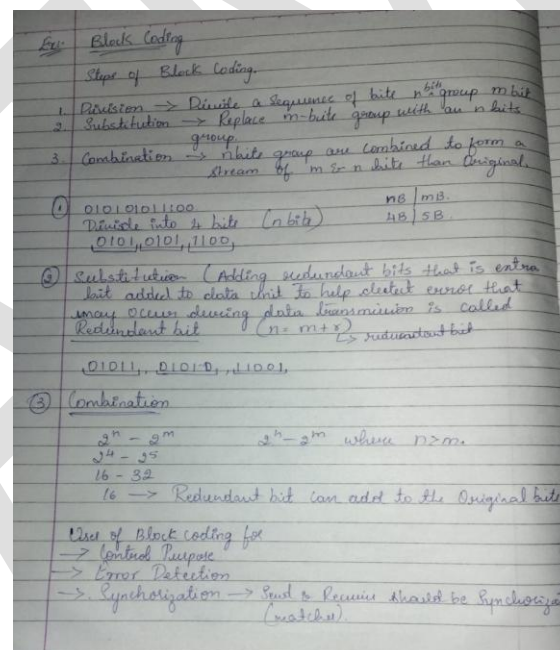 Ex:- Block Coding
Steps of Block Coding.
1. Division → Divide a sequence of bits n bit group m bit
2. Substitution → Replace m-bits group with an n bits
group.
3. Combination → n bits group are combined to form a
stream of m & n bits than Original.
① 010101011100 nB | mB.
Divide into 4 bits (n bits) 4B | 5B
0101, 0101, 1100,
② Substitution (Adding redundant bits that is extra
bit added to data unit to help detect error that
may occur during data transmission is called
Redundant bit (n = m + r)
↳ redundant bit
01011, 01010, 11001,
③ Combination
2ⁿ - 2ᵐ 2ⁿ - 2ᵐ where n>m.
2⁴ - 2⁵
16 - 32
16 → Redundant bit can add to the Original bits
Uses of Block coding for
→ Control Purpose
→ Error Detection
→ Synchorization → Send & Receive should be Synchoriza
(matches).